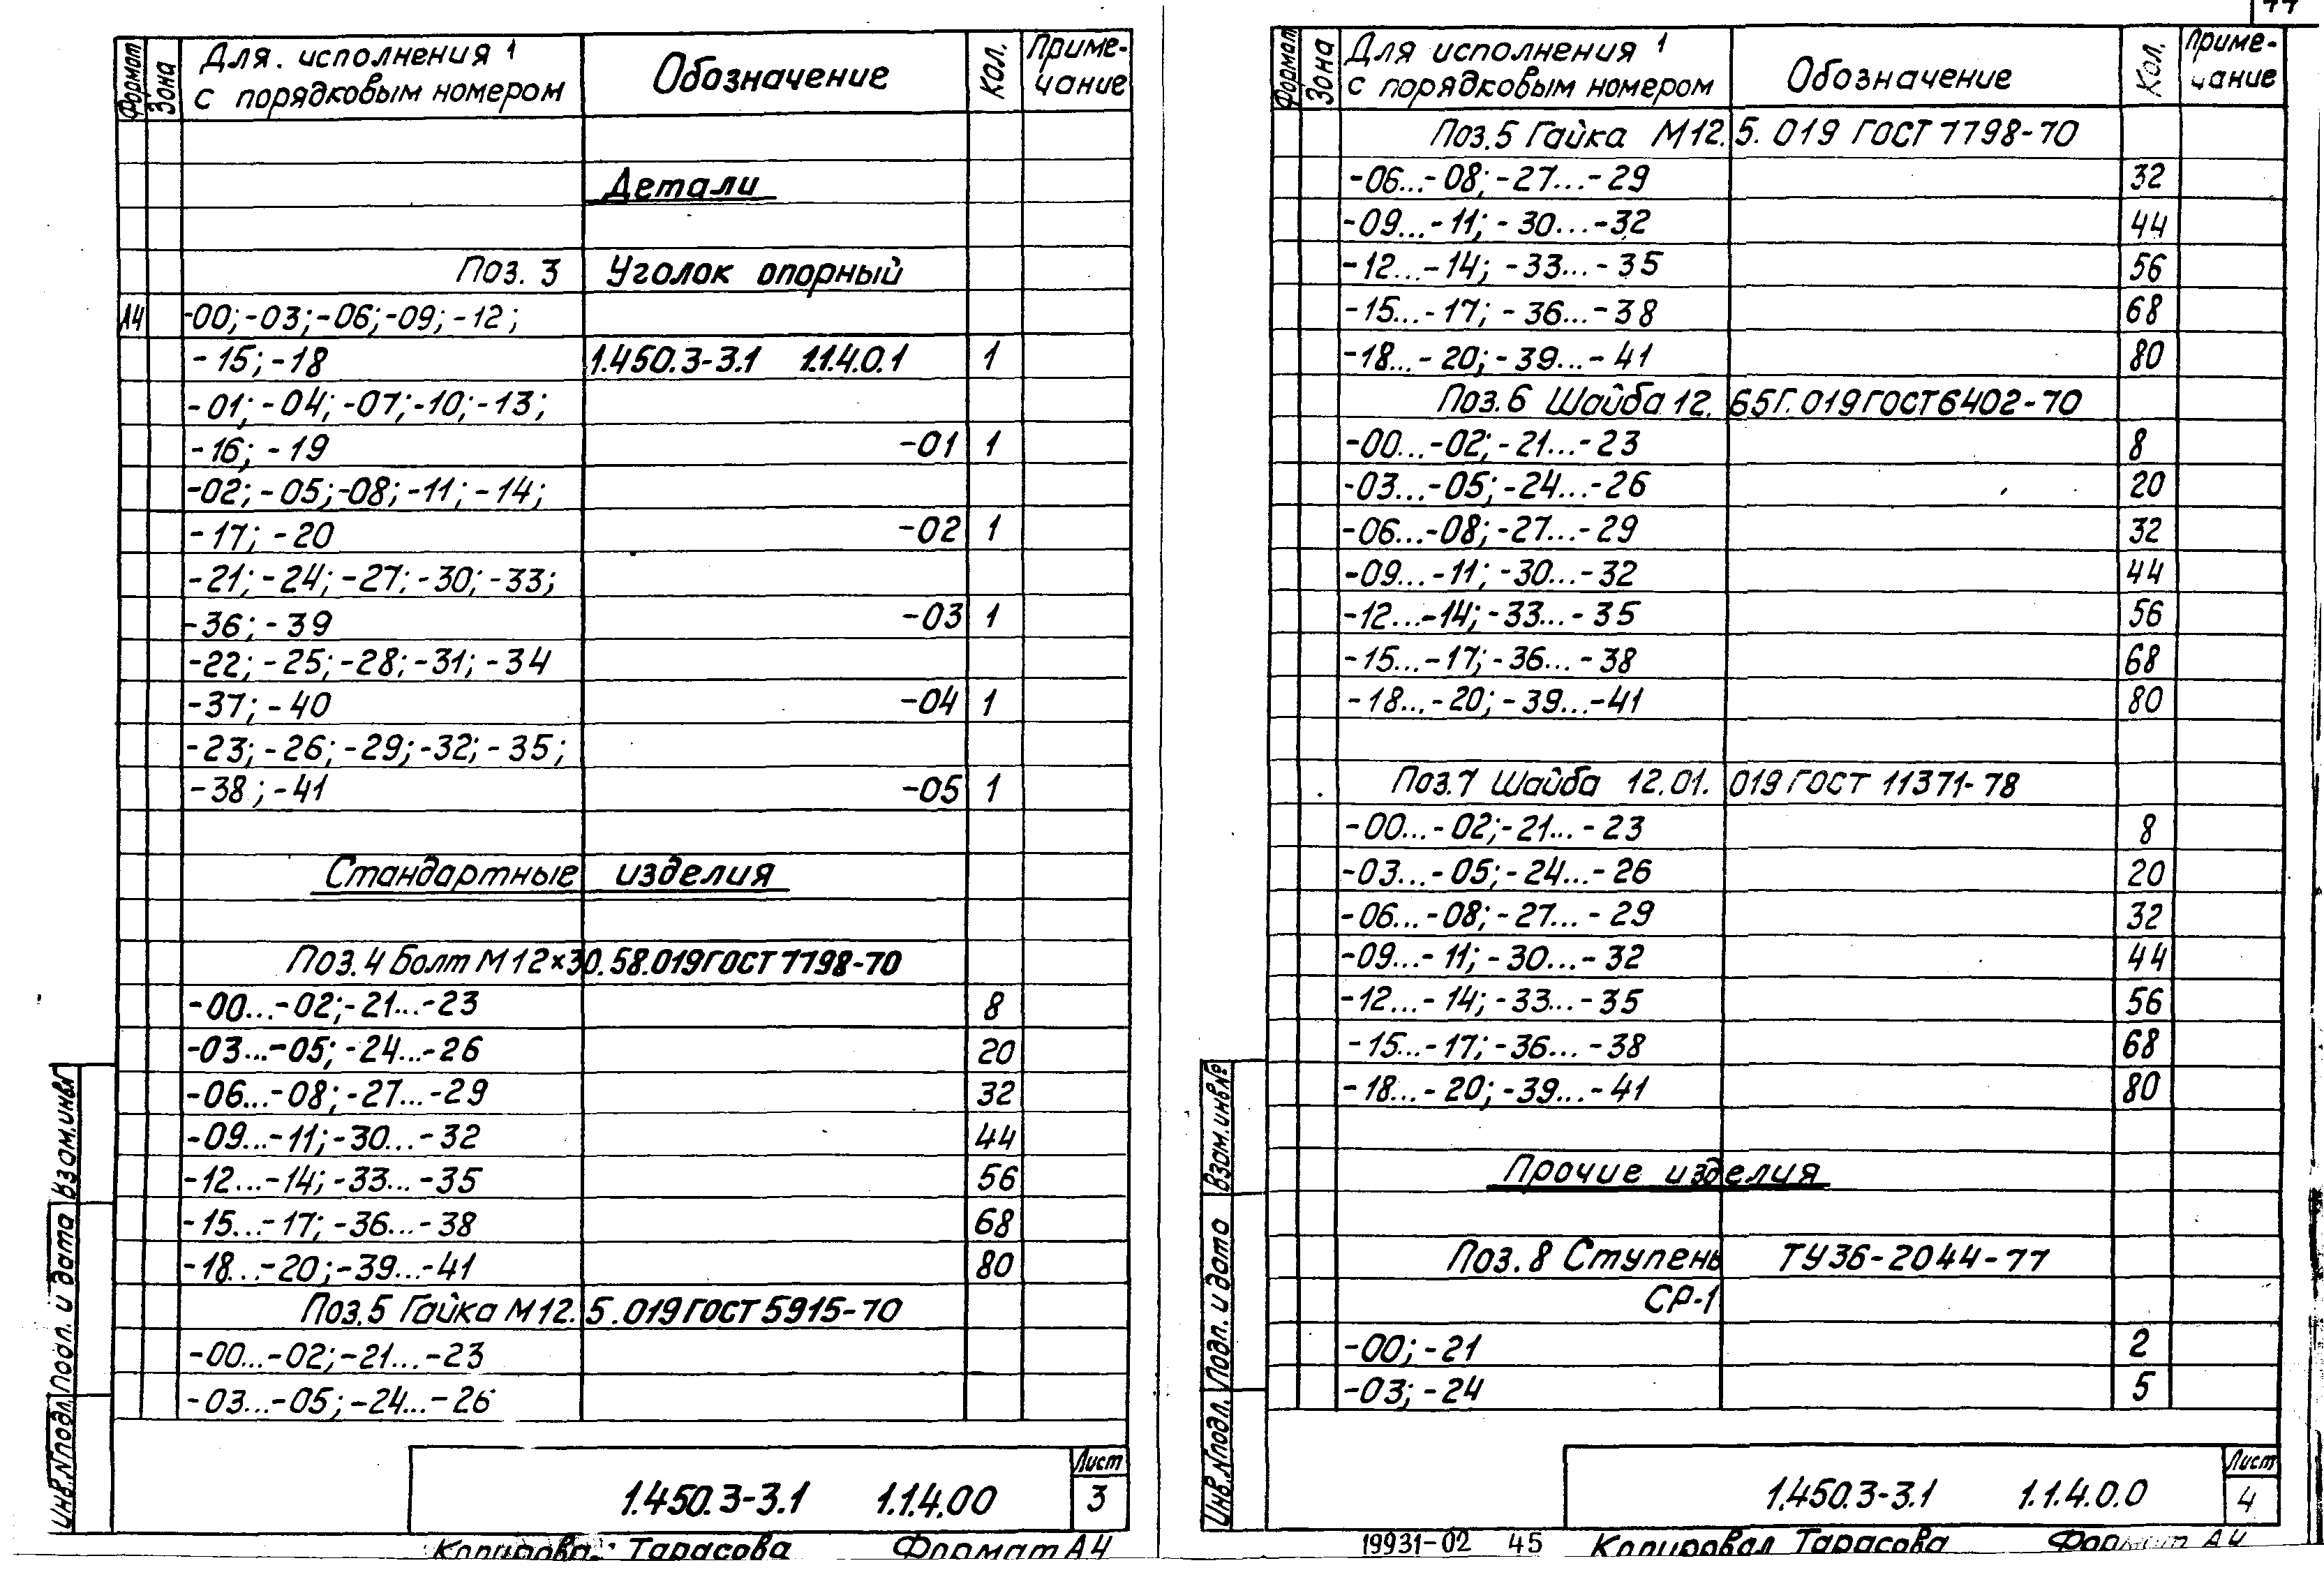 Формат
Зона
Для исполнения 1
с порядковым номером
Обозначение
Кол.
Приме-
чание
Детали
Поз. 3 Уголок опорный
А4 -00; -03; -06; -09; -12;
-15; -18 1.450.3-3.1 1.1.4.0.1 1
-01; -04; -07; -10; -13;
-16; -19 -01 1
-02; -05; -08; -11; -14;
-17; -20 -02 1
-21; -24; -27; -30; -33;
-36; -39 -03 1
-22; -25; -28; -31; -34
-37; -40 -04 1
-23; -26; -29; -32; -35;
-38; -41 -05 1
Стандартные изделия
Поз. 4 Болт М12×30.58.019 ГОСТ 7798-70
-00...-02; -21...-23 8
-03...-05; -24...-26 20
-06...-08; -27...-29 32
-09...-11; -30...-32 44
-12...-14; -33...-35 56
-15...-17; -36...-38 68
-18...-20; -39...-41 80
Поз. 5 Гайка М12.5.019 ГОСТ 5915-70
-00...-02; -21...-23
-03...-05; -24...-26
Инв.№подл. Подп. и дата Взам.инв.№
1.450.3-3.1 1.1.4.00
Лист
3
Копировал Тарасова Формат А4
Формат
Зона
Для исполнения 1
с порядковым номером
Обозначение
Кол.
Приме-
чание
Поз. 5 Гайка М12.5.019 ГОСТ 7798-70
-06...-08; -27...-29 32
-09...-11; -30...-32 44
-12...-14; -33...-35 56
-15...-17; -36...-38 68
-18...-20; -39...-41 80
Поз. 6 Шайба 12.65Г.019 ГОСТ 6402-70
-00...-02; -21...-23 8
-03...-05; -24...-26 20
-06...-08; -27...-29 32
-09...-11; -30...-32 44
-12...-14; -33...-35 56
-15...-17; -36...-38 68
-18...-20; -39...-41 80
Поз. 7 Шайба 12.01.019 ГОСТ 11371-78
-00...-02; -21...-23 8
-03...-05; -24...-26 20
-06...-08; -27...-29 32
-09...-11; -30...-32 44
-12...-14; -33...-35 56
-15...-17; -36...-38 68
-18...-20; -39...-41 80
Прочие изделия
Поз. 8 Ступень ТУ36-2044-77
СР-1
-00; -21 2
-03; -24 5
Инв.№подл. Подп. и дата Взам.инв.№
1.450.3-3.1 1.1.4.0.0
Лист
4
19931-02 45 Копировал Тарасова Формат А4